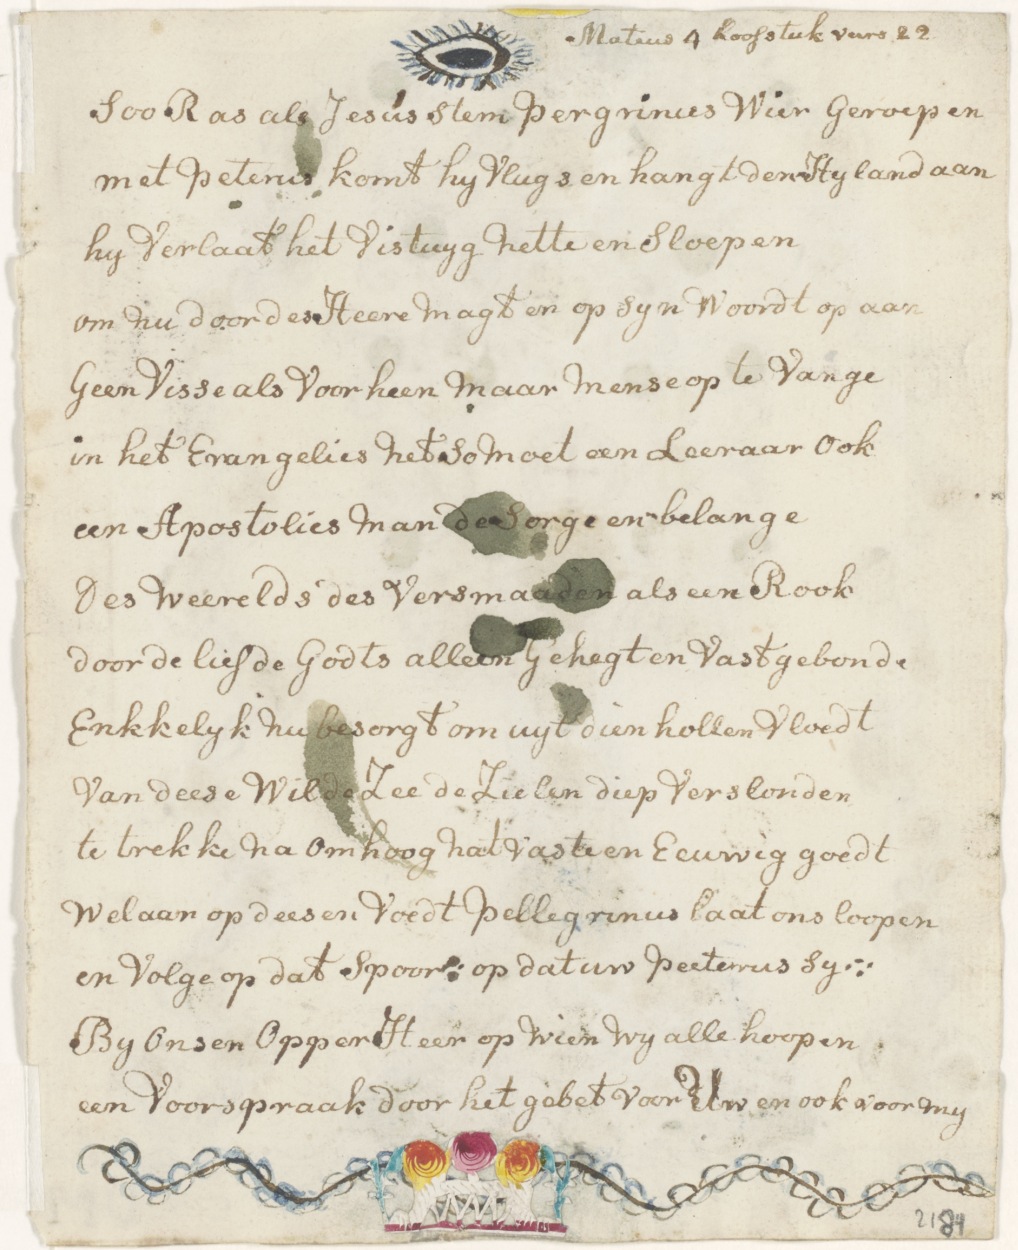 Mateus 4 hoofstuk vers 22
Soo Ras als Jesus stem Pergrinus Wier Geroepen
met Peterus komt hy Vlugs en hangt den Hyland aan
hy Verlaat het Vistuyg nette en Sloepen
om nu door des Heere magt en op syn Woordt op aan
Geen Visse als Voorheen maar mense op te Vange
in het Evangelies net So moet een Leeraar Ook
een Apostolies man de Sorge en belange
Des Weerelds des Versmaaden als een Rook
door de liefde Godts alleen Gehegt en Vast gebonde
Enkkelyk nu besorgt om uyt dien hollen Vloedt
Van deese Wilde Zee de Zielen diep Verslonden
te trekke na Omhoog nat vaste en Eeuwig goedt
Welaan op deesen Voedt Pellegrinus laat ons loopen
en Volge op dat Spoor: op dat uw Peeterus Sy:
By Onsen Opper Heer op Wien Wy alle hoopen
een Voorspraak door het gebet voor Uw en ook voor my
2184